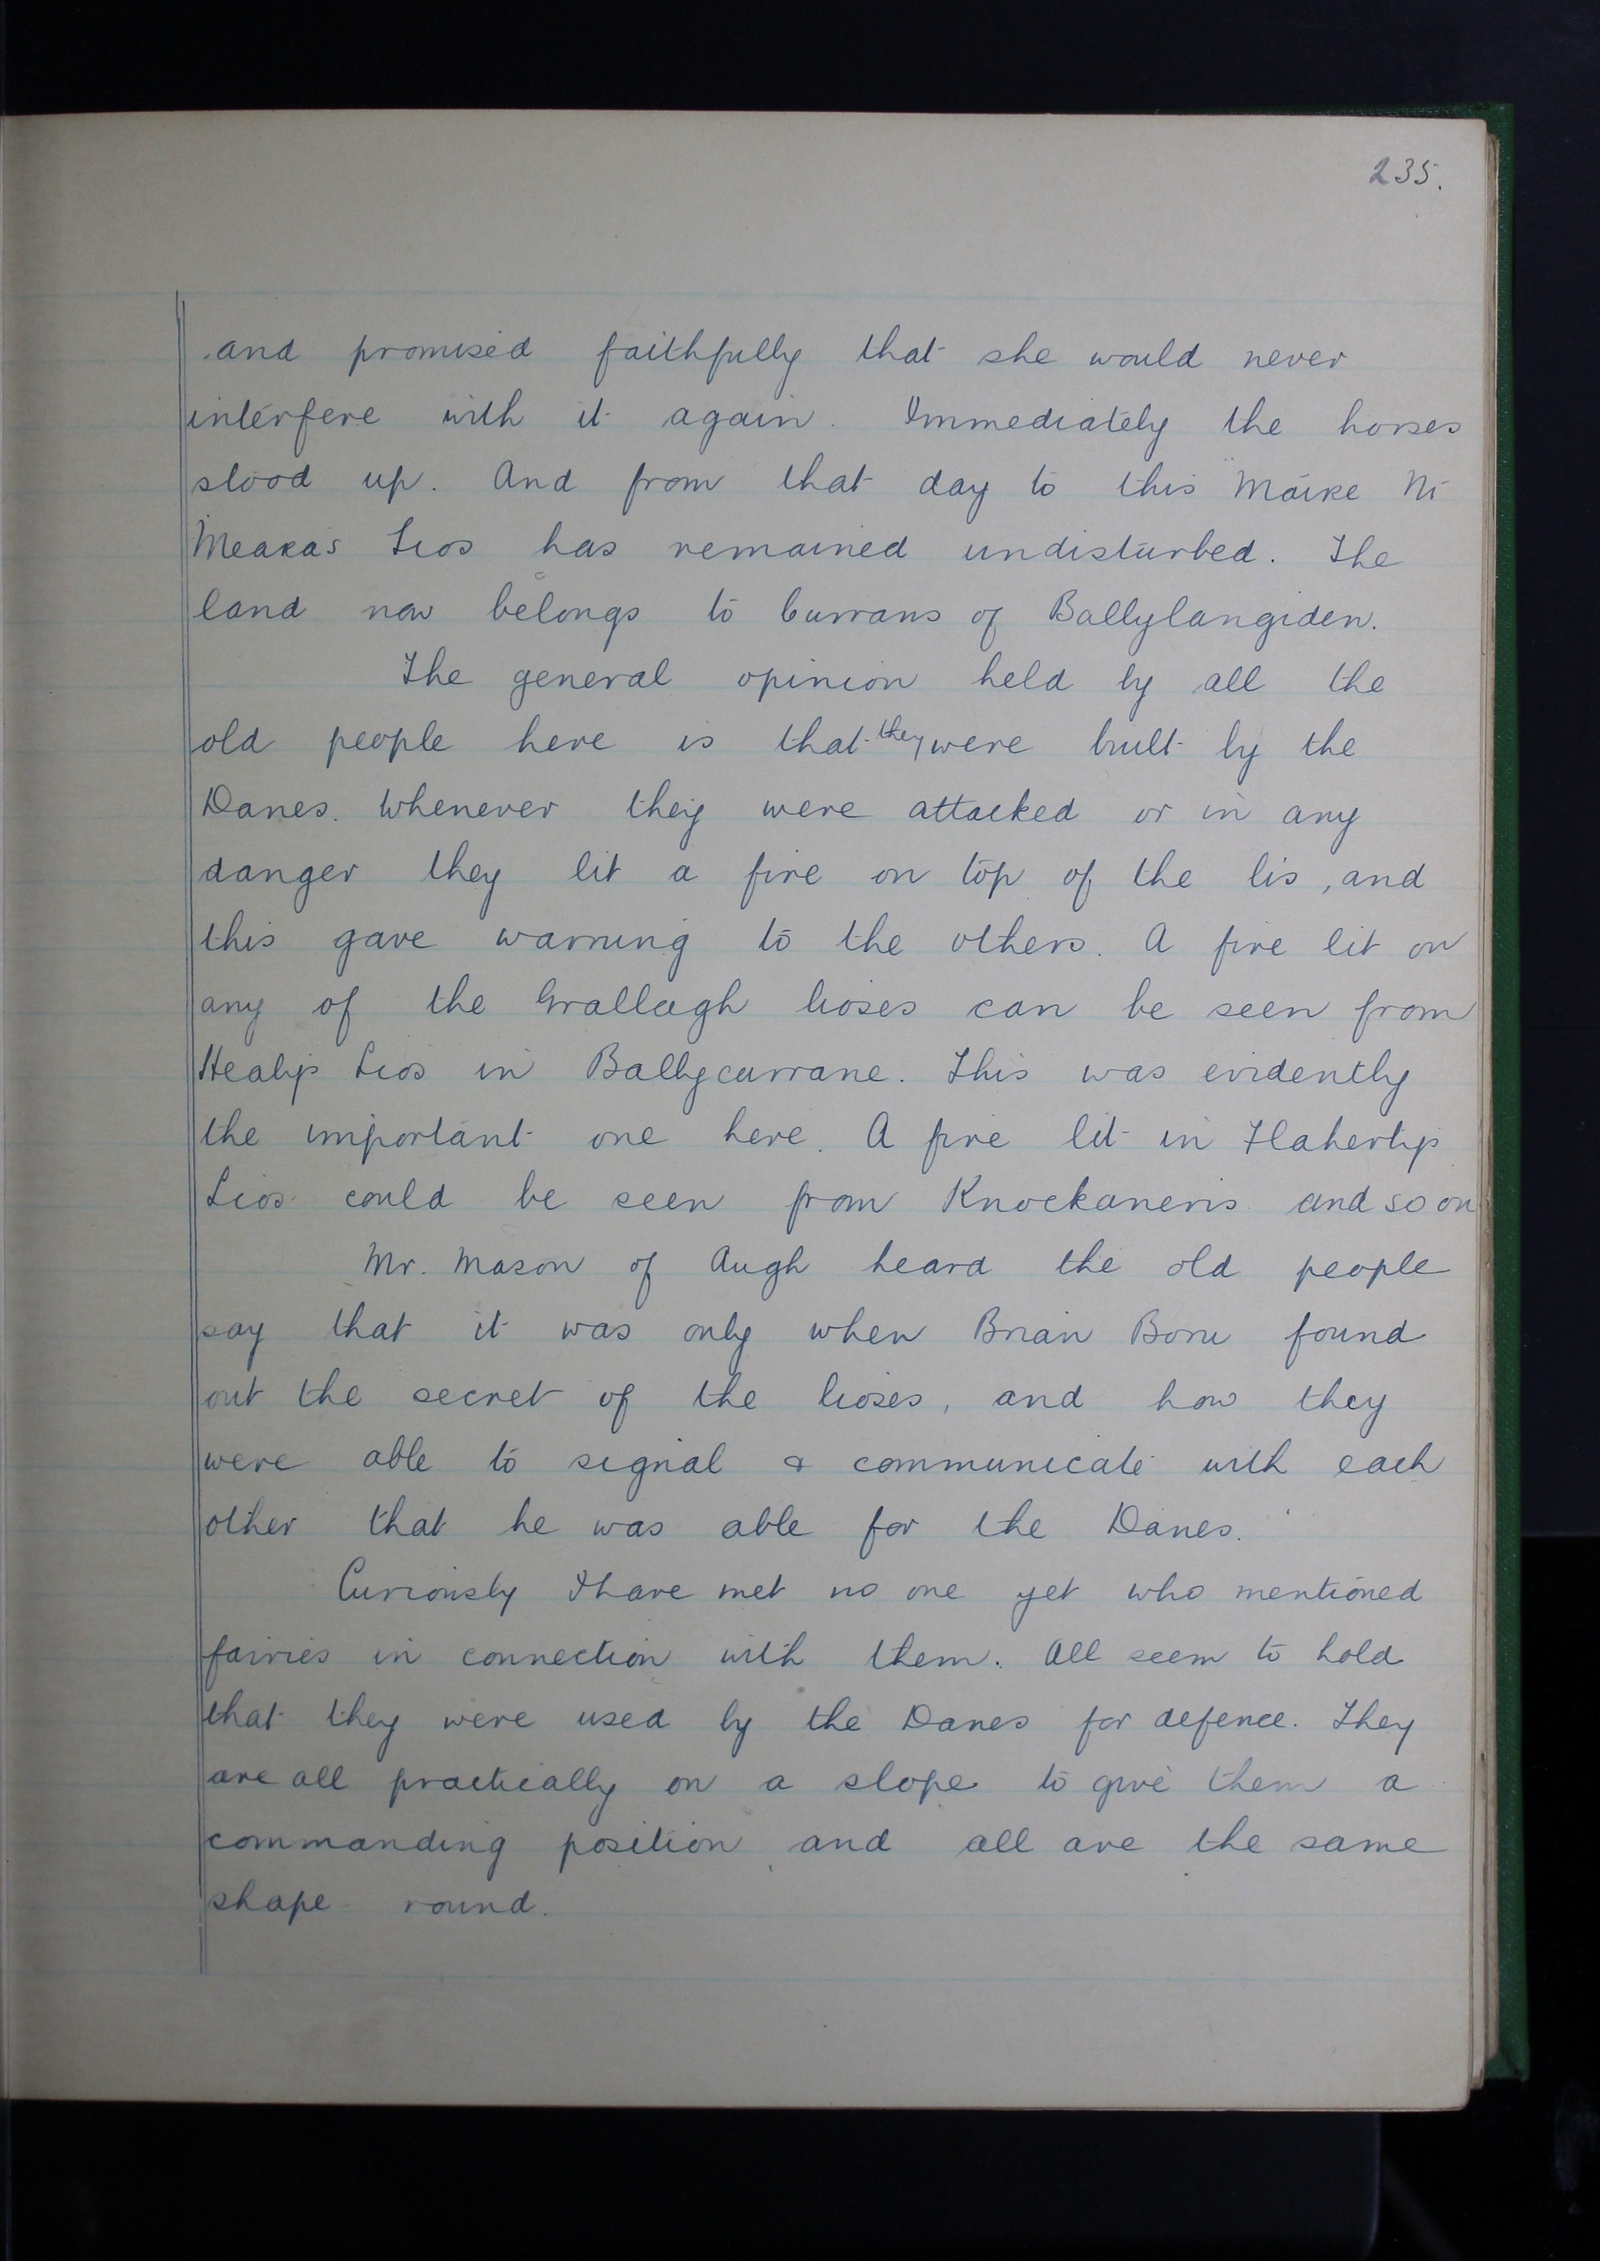 235.
and promised faithfully that she would never
interfere with it again. Immediately the horses
stood up. And from that day to this Máire Ní
Meara's Lios has remained undisturbed. The
land now belongs to Currans of Ballylangiden.
The general opinion held by all the
old people here is that they were built by the
Danes. Whenever they were attacked or in any
danger they lit a fire on top of the lis, and
this gave warning to the others. A fire lit on
any of the Grallagh lioses can be seen from
Healy's Lios in Ballycurrane. This was evidently
the important one here. A fire lit in Flaherty's
Lios could be seen from Knockaneris and so on
Mr. Mason of Augh heard the old people
say that it was only when Brian Boru found
out the secret of the lioses, and how they
were able to signal & communicate with each
other that he was able for the Danes.
Curiously I have met no one yet who mentioned
fairies in connection with them. All seem to hold
that they were used by the Danes for defence. They
are all practically on a slope to give them a
commanding position and all are the same
shape round.